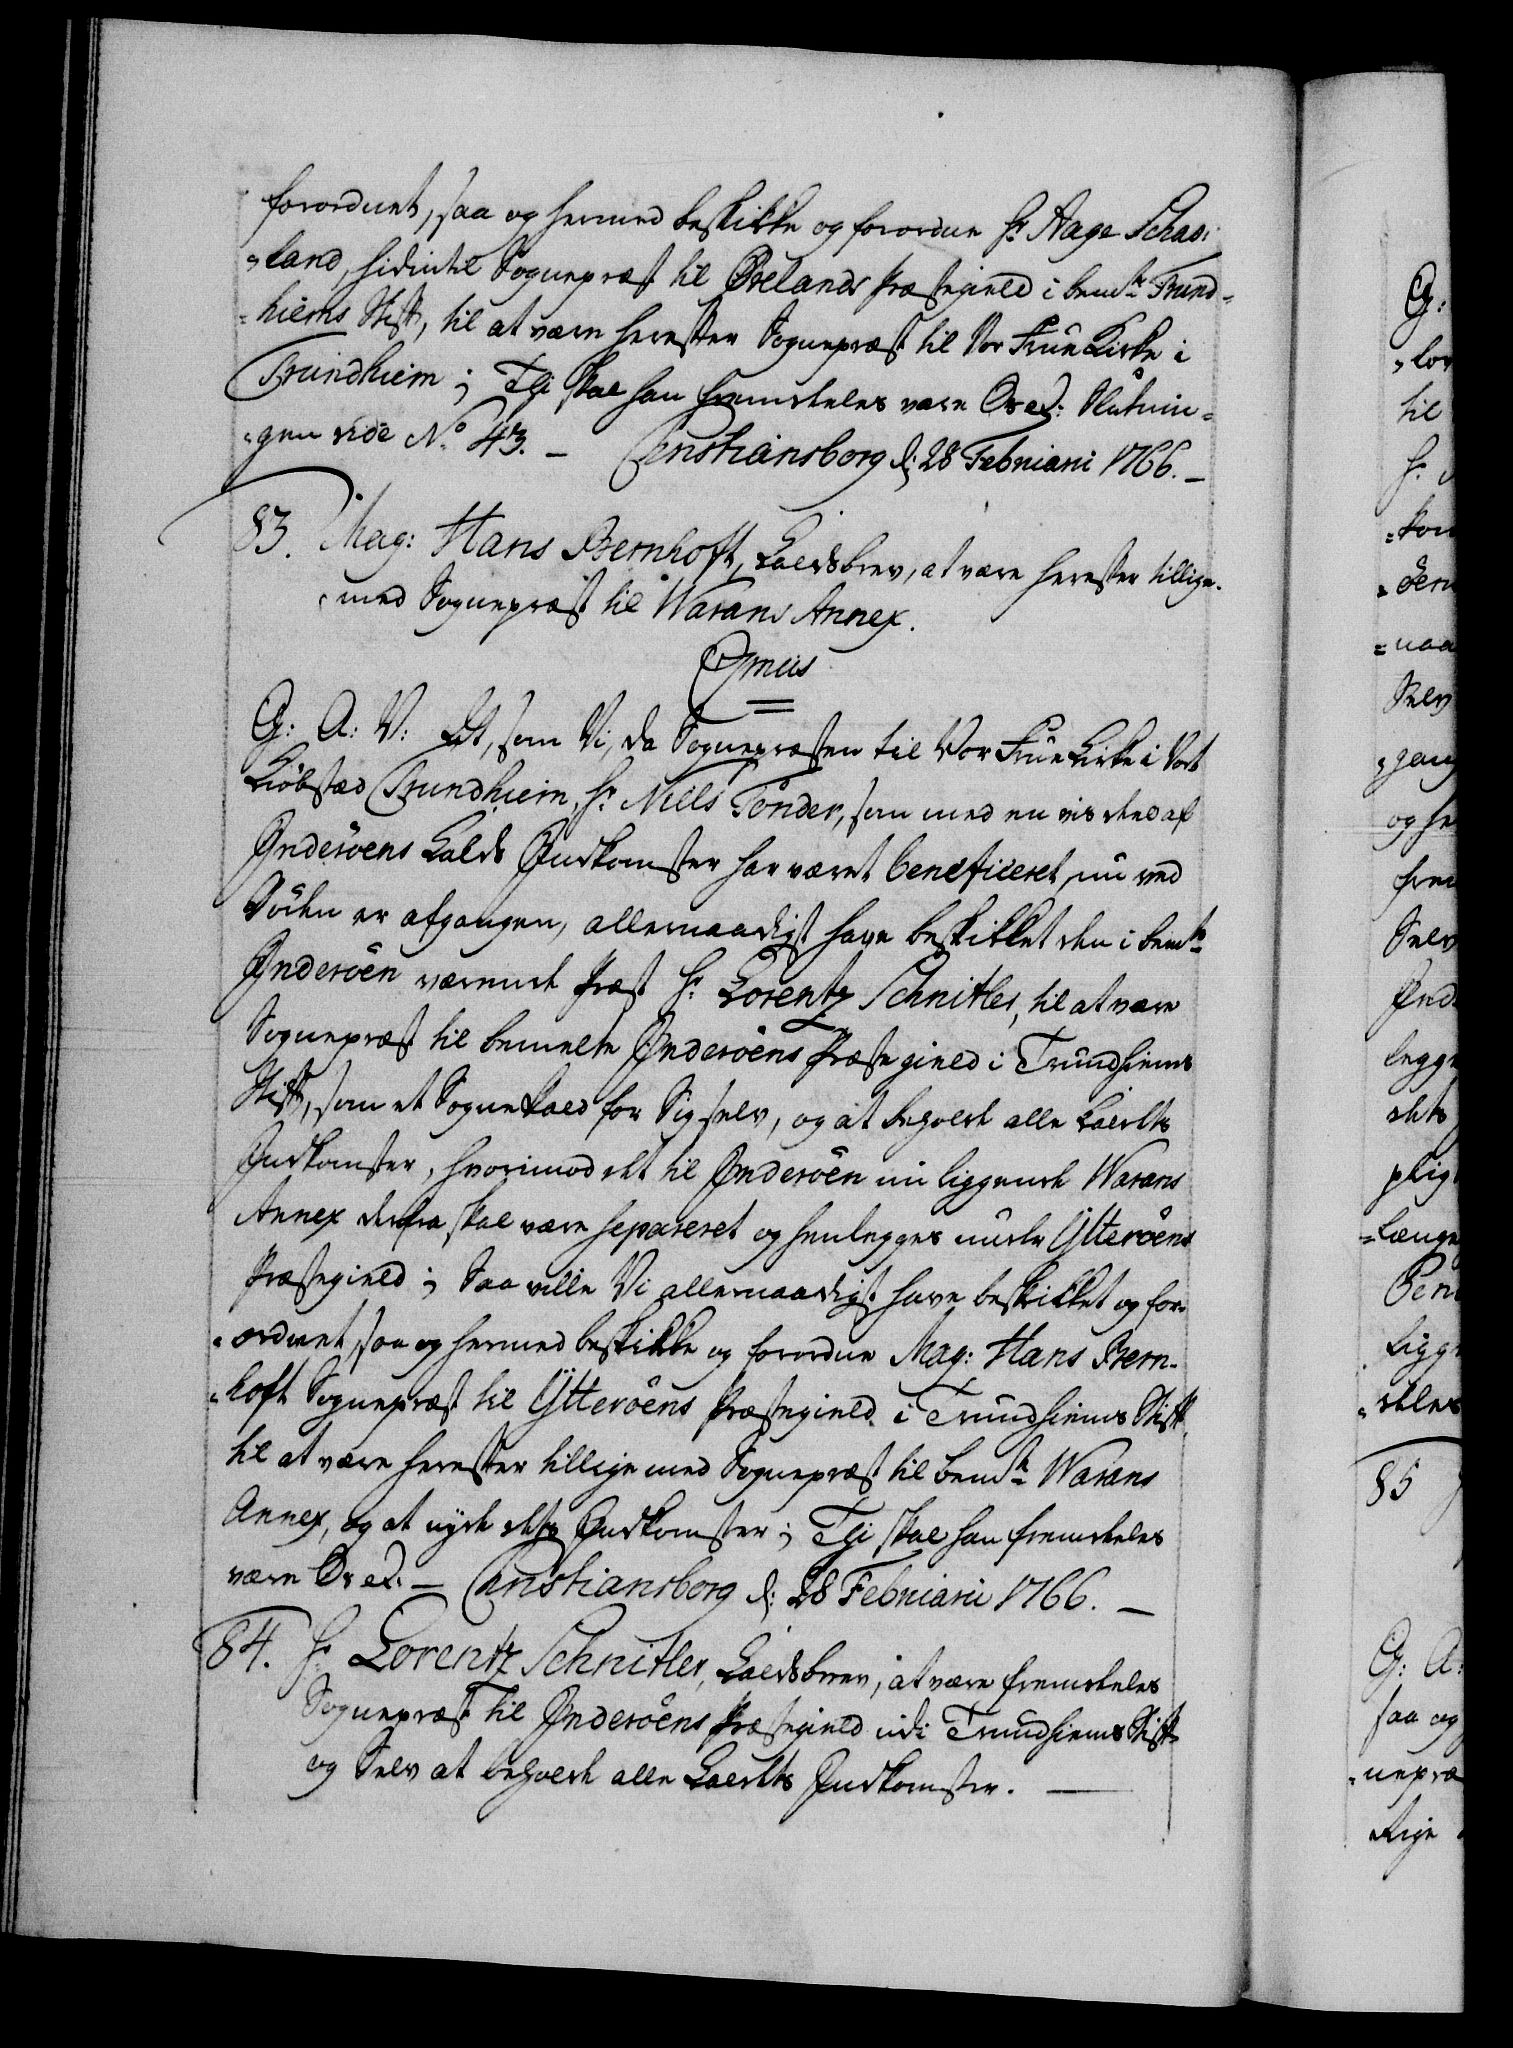 forordnet, saa og hermed beskikke og forordne Hr Aage Schav¬
„land, hidindtil Sognepræst til Ørelands Præstegield i bemte Trund¬
„hiems Stift, til at være herefter Sognepræst til Vor Frue Kirke i
Trundhiem; Thi skal han fremdeles være Os ed: Slutnin¬
„gen vide No 43. – Christiansborg d: 28 Februarii 1766. –
83. Mag: Hans Bernhoft, Kaldsbrev, at være herefter tillige¬
„med Sognepræst til Warans Annex.
Qmus
G: A: V: Eft, som Vi, da Sognepræsten til Vor Frue Kirke i Vort
Kiøbstad Trundhiem, Hr Niels Tønder, som med en vis deel af
Inderøens Kalds Indkomster har været beneficeret, nu ved
Døden er afgangen, allernaadigst have beskikket den i bemte
Inderøen værende Præst Hr Lorentz Schnitler, til at være
Sognepræst til bemelte Inderøens Præstegield i Trundhiems
Stift, som et Sognekald for Sig selv, og at beholde alle Kaldets
Indkomster, hvorimod det til Inderøen nu liggende Warans
Annex derfra skal være separeret og henlegges under Ytterøens
Præstegield; Saa ville Vi allernaadigst have beskikket og for¬
„ordnet, saa og hermed beskikke og forordne Mag: Hans Bern¬
„hoft Sognepræst til Ytterøens Præstegield i Trundhiems Stift,
til at være herefter tilligemed Sognepræst til bemte Warans
Annex, og at nyde dets Indkomster; Thi skal han fremdeles
være Os ed: – Christiansborg d: 28 Februarii 1766. –
84. Hr Lorentz Schnitler, Kaldsbrev, at være fremdeles
Sognepræst til Inderøens Præstegield udi Trundhiems Stift
og Selv at beholde alle Kaldets Indkomster. –
G:
til
Hr
„naa
Selv
og he
Selv
Ind
legge
dets
Ligg
„deles
85
G: A:
saa og
„nepræ